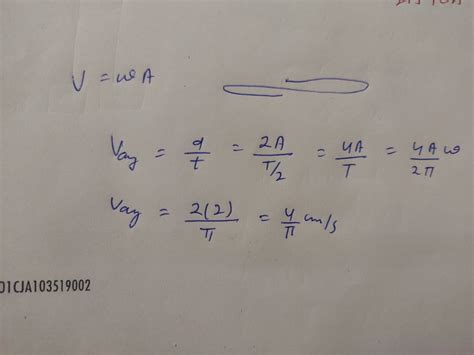 V = ωA
Vay = d/t = 2A/(T/2) = 4A/T = 4A ω/2π
Vay = 2(2)/π = 4/π cm/s
01CJA103519002